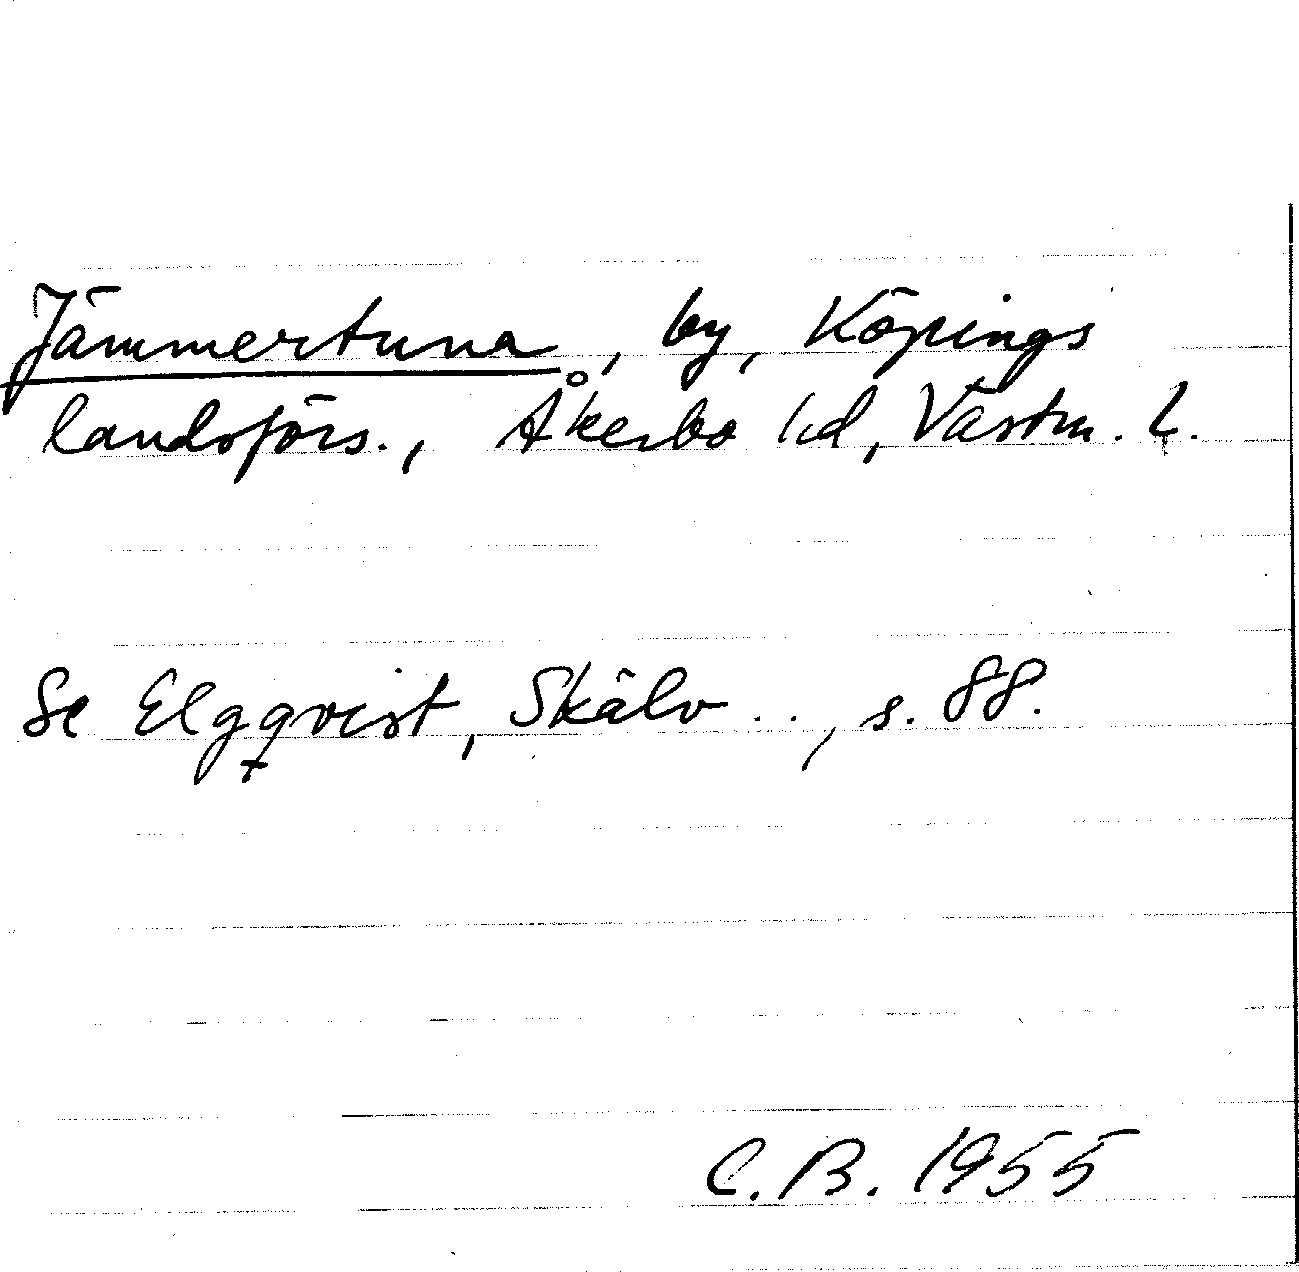 Jämmertuna, by, Köpings
landsförs., Åkerbo hd, Västm. l.
Se Elgqvist, Skälv . . , s. 88.
C. B. 1955